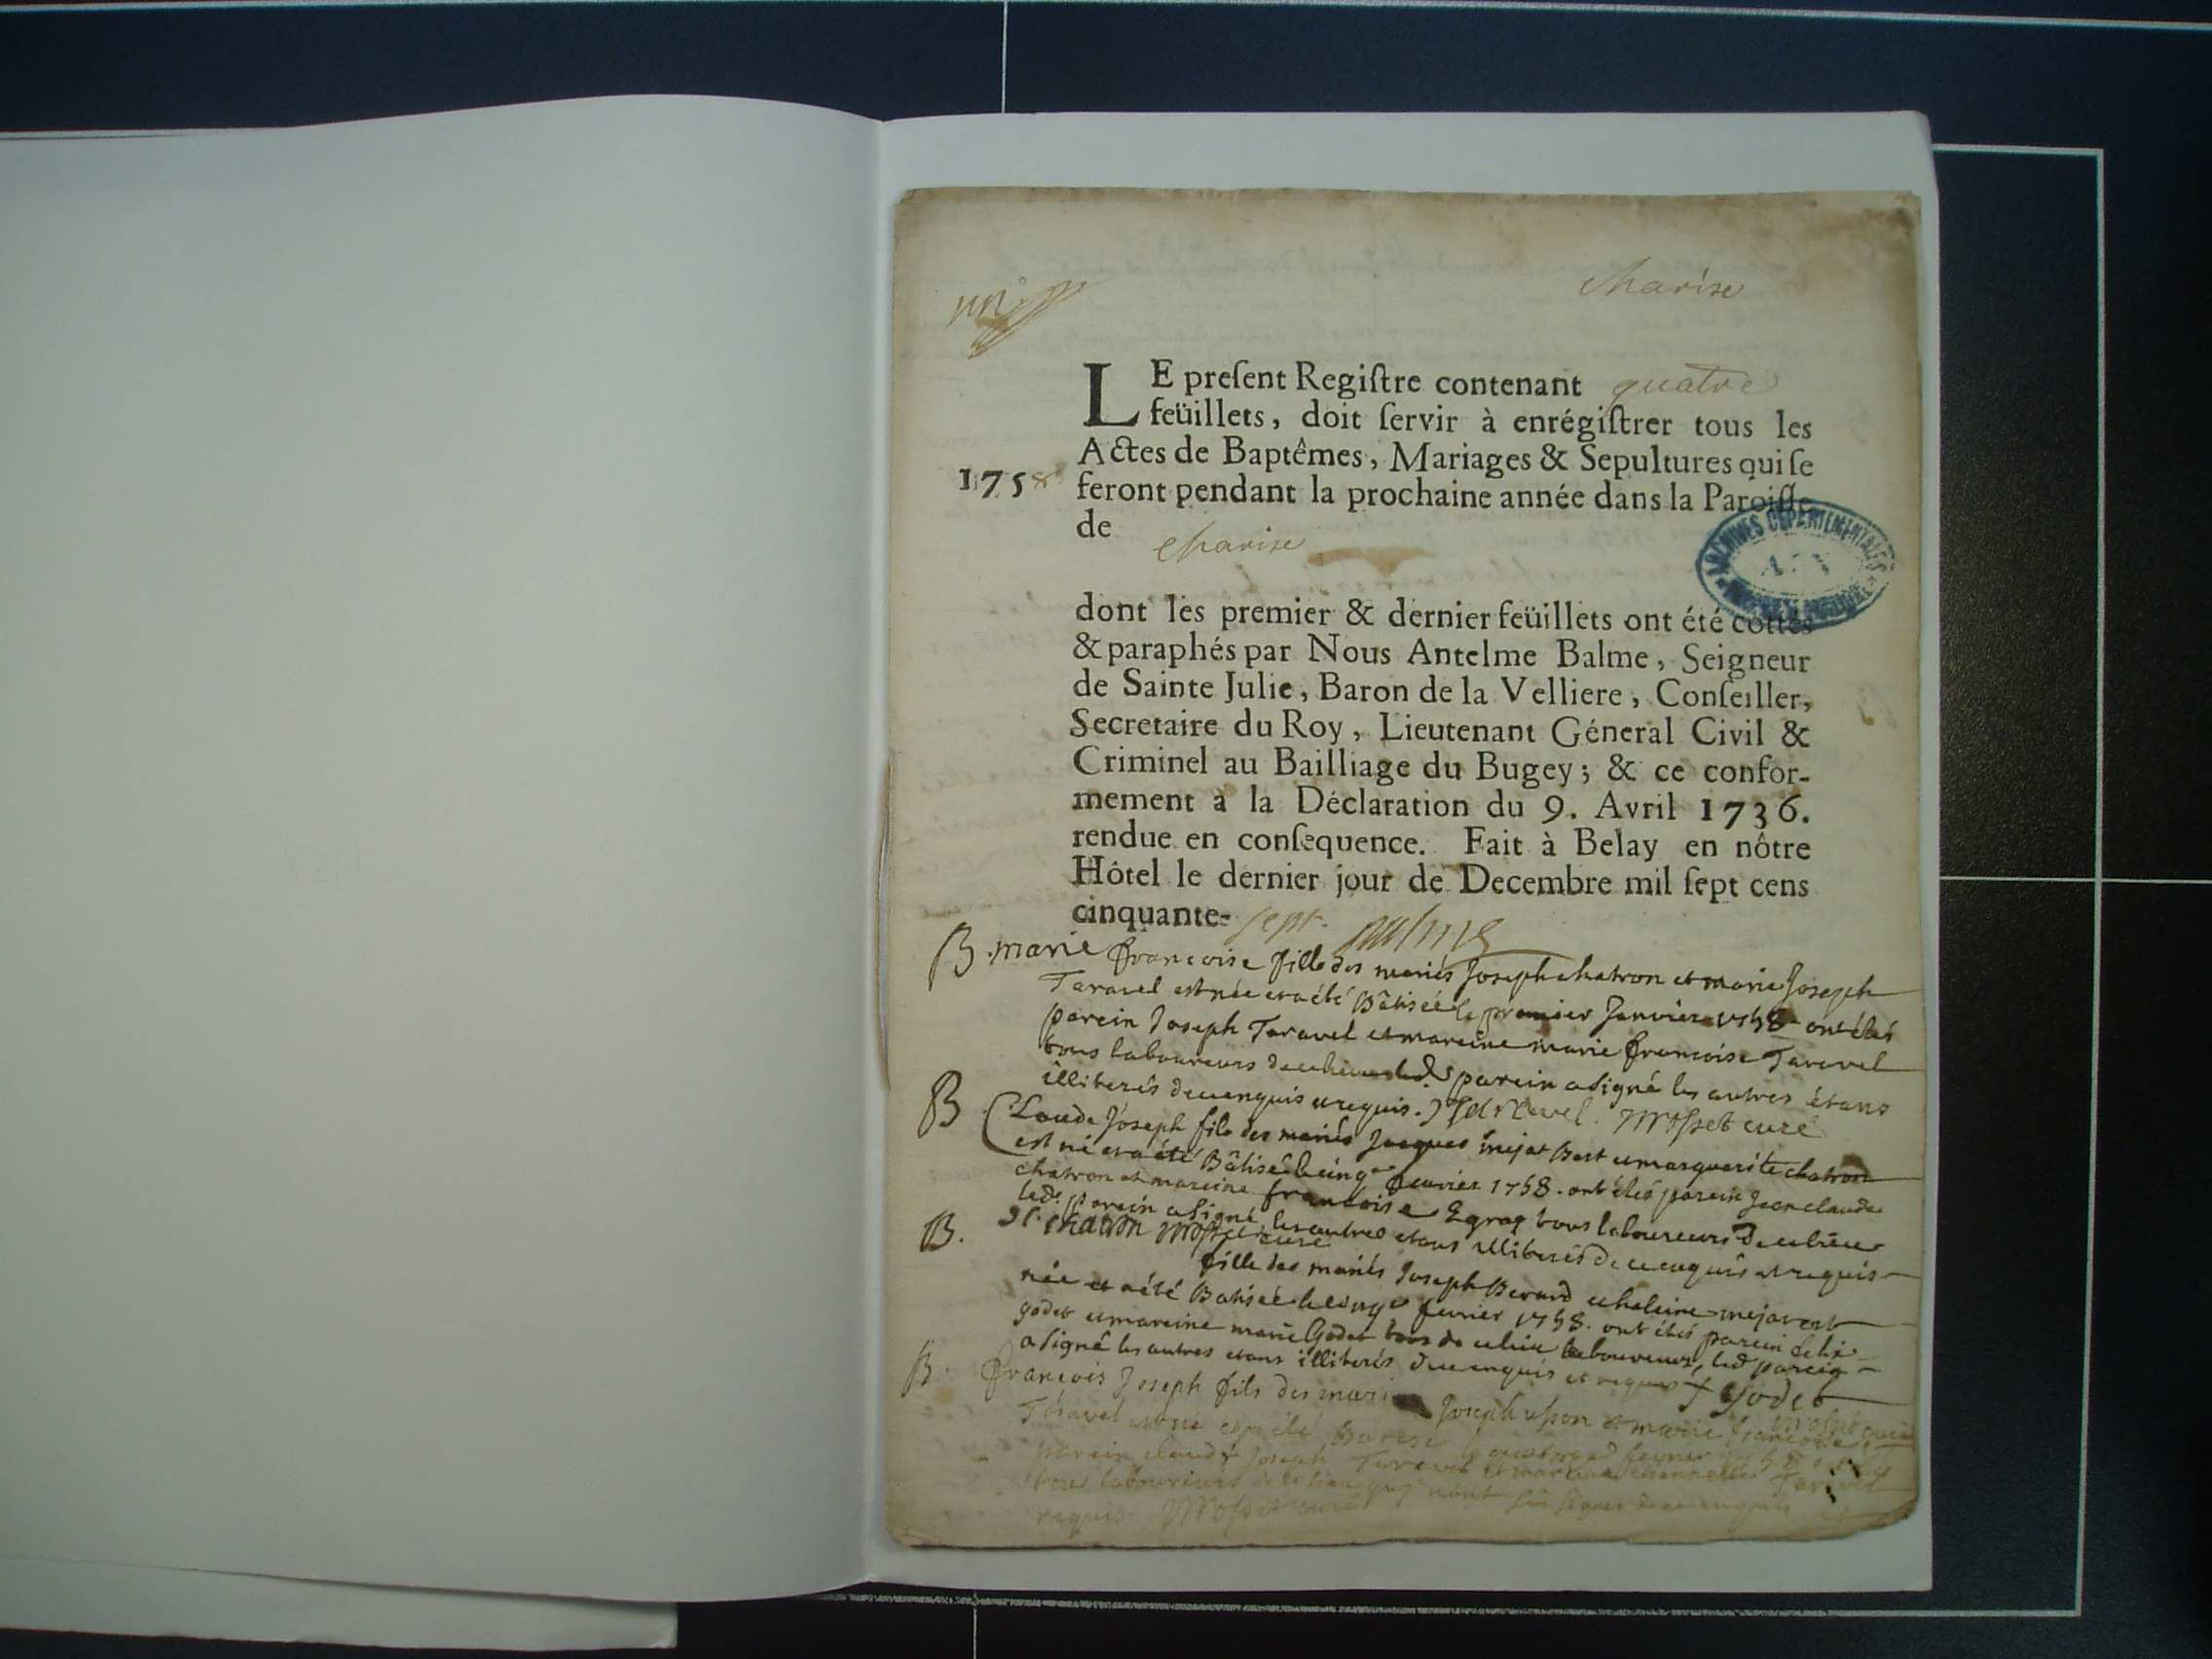 un
Charise
LE preſent Regiſtre contenant quatre
feüillets, doit ſervir à enrégiſtrer tous les
Actes de Baptêmes, Mariages & Sepultures qui ſe
1758 feront pendant la prochaine année dans la Paroiſſe
de Charise
ARCHIVES DEPARTEMENTALES
AIN
dont les premier & dernier feüillets ont été cottés
& paraphés par Nous Antelme Balme, Seigneur
de Sainte Julie, Baron de la Velliere, Conſeiller,
Secretaire du Roy, Lieutenant Géneral Civil &
Criminel au Bailliage du Bugey; & ce confor-
mement à la Déclaration du 9. Avril 1736.
rendue en conſequence. Fait à Belay en nôtre
Hôtel le dernier jour de Decembre mil ſept cens
cinquante- sept. Balme
B. marie francoise fille des mariés Joseph chatron et marie Joseph
Taravel est née et a été Bâtisée le premier Janvier 1758 ont étés
parein Joseph Taravel et mareine marie francoise Taravel
tous laboureurs parein a signé les autres étans
illiterés de ce enquis et requis. J Taravel. Mosset curé
B Claude Joseph fils des mariés Jacques mejat Bert et marguerite chatron
est né et a été Bâtisé le cinq fevrier 1758. ont étés parein Jean claude
chatron et mareine francoise tous laboureurs de ce lieu
led. parein a signé les autres etans illiterés de ce enquis et requis
B. J C chatron Mosset curé
fille des mariés Joseph Berard et heleine mejat est
née et a été Batisée le fevrier 1758. ont étés parein felix
godet et mareine marie Godet tous de ce lieu laboureurs, led parein
a signé les autres etans illiterés de ce enquis et requis f Godet
Mosset curé
B. François Joseph fils des mariés Joseph et marie francoise
Taravel est né et a été Batisé le quatorze fevrier 1758
parein claude Joseph Taravel et mareine Taravel
tous laboureurs de ce lieu qui n'ont sû signer de ce enquis et
requis Mosset curé